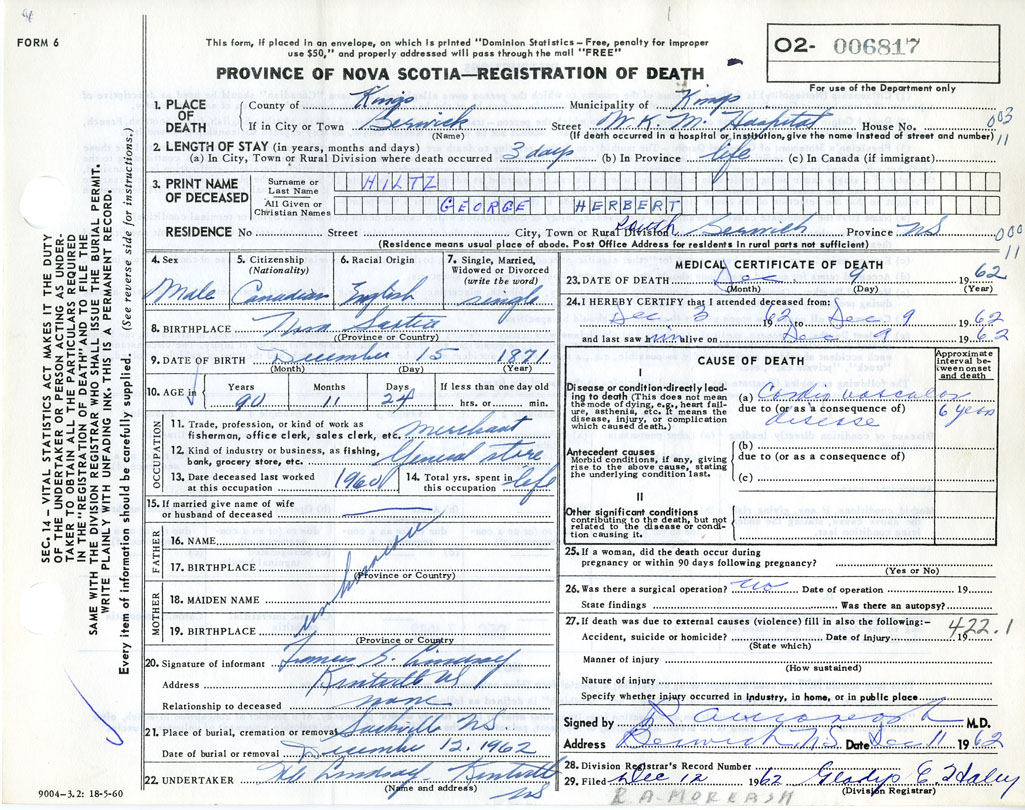 FORM 6
This form, if placed in an envelope, on which is printed "Dominion Statistics – Free, penalty for improper
use $50," and properly addressed will pass through the mail "FREE"
PROVINCE OF NOVA SCOTIA—REGISTRATION OF DEATH
O2- 006817
For use of the Department only
1. PLACE OF DEATH
County of Kings Municipality of Kings
If in City or Town Berwick Street W. K. M. Hospital House No. 003
(Name) (If death occurred in a hospital or institution, give the name instead of street and number) 11
2. LENGTH OF STAY (in years, months and days)
(a) In City, Town or Rural Division where death occurred 3 days (b) In Province life (c) In Canada (if immigrant)
3. PRINT NAME OF DECEASED
Surname or Last Name HILTZ
All Given or Christian Names GEORGE HERBERT
RESIDENCE No Street City, Town or Rural Division South Berwick Province NS
(Residence means usual place of abode. Post Office Address for residents in rural parts not sufficient)
000
11
4. Sex Male
5. Citizenship (Nationality) Canadian
6. Racial Origin English
7. Single, Married, Widowed or Divorced (write the word) single
8. BIRTHPLACE Nova Scotia
(Province or Country)
9. DATE OF BIRTH December 15 1871
(Month) (Day) (Year)
10. AGE in Years 90 Months 11 Days 24 If less than one day old hrs. or min.
OCCUPATION
11. Trade, profession, or kind of work as
fisherman, office clerk, sales clerk, etc. merchant
12. Kind of industry or business, as fishing,
bank, grocery store, etc. General store
13. Date deceased last worked
at this occupation 1960
14. Total yrs. spent in
this occupation life
15. If married give name of wife
or husband of deceased
FATHER
16. NAME
17. BIRTHPLACE
(Province or Country)
unknown
MOTHER
18. MAIDEN NAME
19. BIRTHPLACE
(Province or Country)
20. Signature of informant Francis G. Lindsay
Address Kentville NS
Relationship to deceased none
21. Place of burial, cremation or removal Sackville NS.
Date of burial or removal December 12. 1962
22. UNDERTAKER Lindsay Kentville
(Name and address) NS
MEDICAL CERTIFICATE OF DEATH
23. DATE OF DEATH Dec. 9 1962
(Month) (Day) (Year)
24. I HEREBY CERTIFY that I attended deceased from:
Dec 3 1962 to Dec 9 1962
and last saw him alive on Dec 9 1962
CAUSE OF DEATH
Approximate interval between onset and death
I
Disease or condition directly leading to death (This does not mean the mode of dying, e.g., heart failure, asthenia, etc. It means the disease, injury, or complication which caused death.)
(a) Cardio vascular
due to (or as a consequence of) 6 years
disease
Antecedent causes
Morbid conditions, if any, giving rise to the above cause, stating the underlying condition last.
(b)
due to (or as a consequence of)
(c)
II
Other significant conditions
contributing to the death, but not related to the disease or condition causing it.
25. If a woman, did the death occur during
pregnancy or within 90 days following pregnancy?
(Yes or No)
26. Was there a surgical operation? no Date of operation 19
State findings Was there an autopsy?
27. If death was due to external causes (violence) fill in also the following:–
422.1
Accident, suicide or homicide? Date of injury 19
(State which)
Manner of injury
(How sustained)
Nature of injury
Specify whether injury occurred in industry, in home, or in public place
Signed by M.D.
Address Berwick, N.S. Date Dec 11 1962
28. Division Registrar's Record Number
29. Filed Dec 12 1962 Gladys E. Haley
(Division Registrar)
R.A. MORRASH
9004–3.2: 18-5-60
SEC. 14 – VITAL STATISTICS ACT MAKES IT THE DUTY
OF THE UNDERTAKER OR PERSON ACTING AS UNDER-
TAKER TO OBTAIN ALL THE PARTICULARS REQUIRED
IN THE "REGISTRATION OF DEATH" AND TO FILE THE
SAME WITH THE DIVISION REGISTRAR WHO SHALL ISSUE THE BURIAL PERMIT.
WRITE PLAINLY WITH UNFADING INK. THIS IS A PERMANENT RECORD.
Every item of information should be carefully supplied. (See reverse side for instructions.)